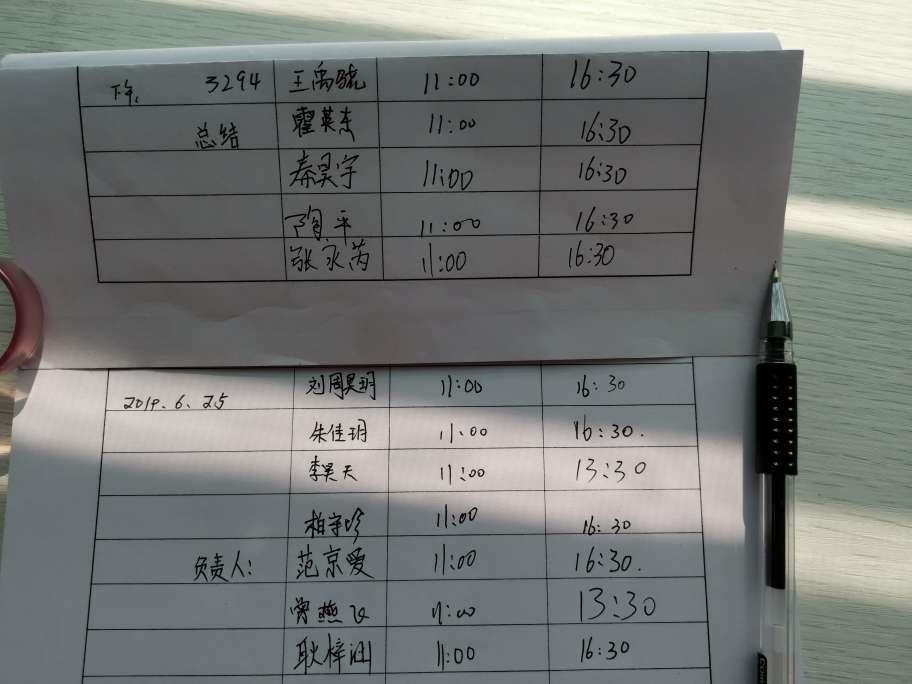 下午: 3294 王禹骁 11:00 16:30
总结 霍英杰 11:00 16:30
秦昊宇 11:00 16:30
陶平 11:00 16:30
张家芮 11:00 16:30
2019.6.25 刘周昊玥 11:00 16:30
朱佳玥 11:00 16:30.
李昊天 11:00 13:30
柏宇珍 11:00 16:30
负责人: 范京爱 11:00 16:30.
曾燕飞 11:00 13:30
耿梓涵 11:00 16:30